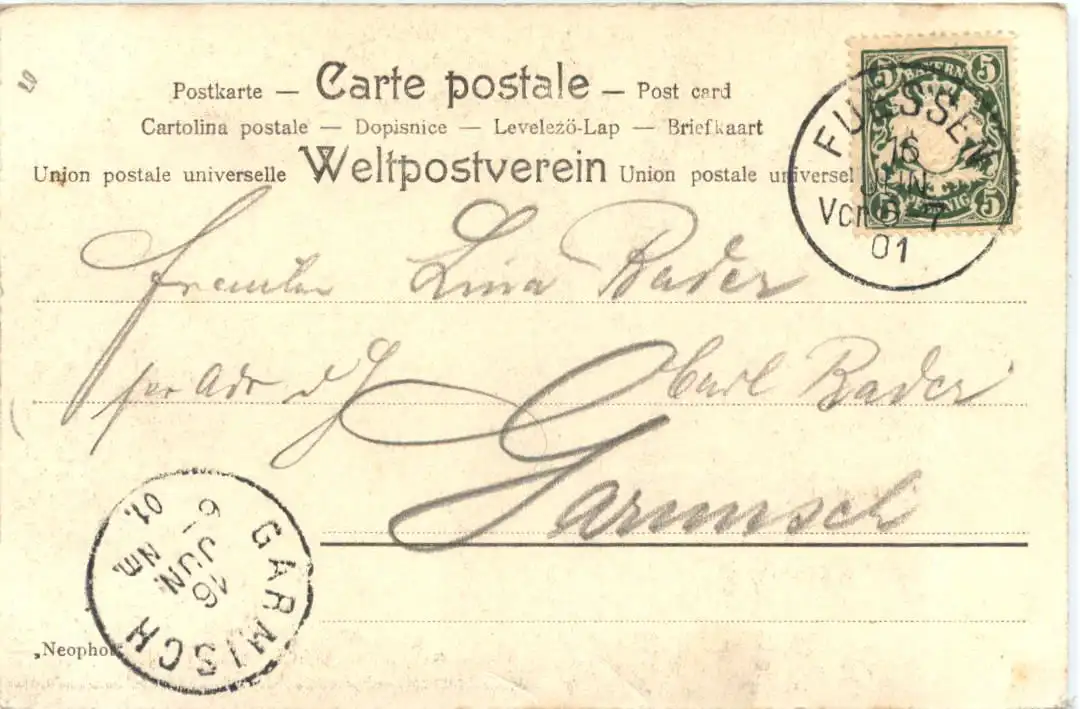 20
Postkarte — Carte postale — Post card
Cartolina postale — Dopisnice — Levelező-Lap — Briefkaart
Union postale universelle Weltpostverein Union postale universel
5 BAYERN 5
5 PFENNIG 5
FUESSEN
16
JUN
Vor 6-7
01
Fräulein Lina Bader
per Adr d H Carl Bader
Garmisch
GARMISCH
16
JUN.
Nm.
01.
„Neophot